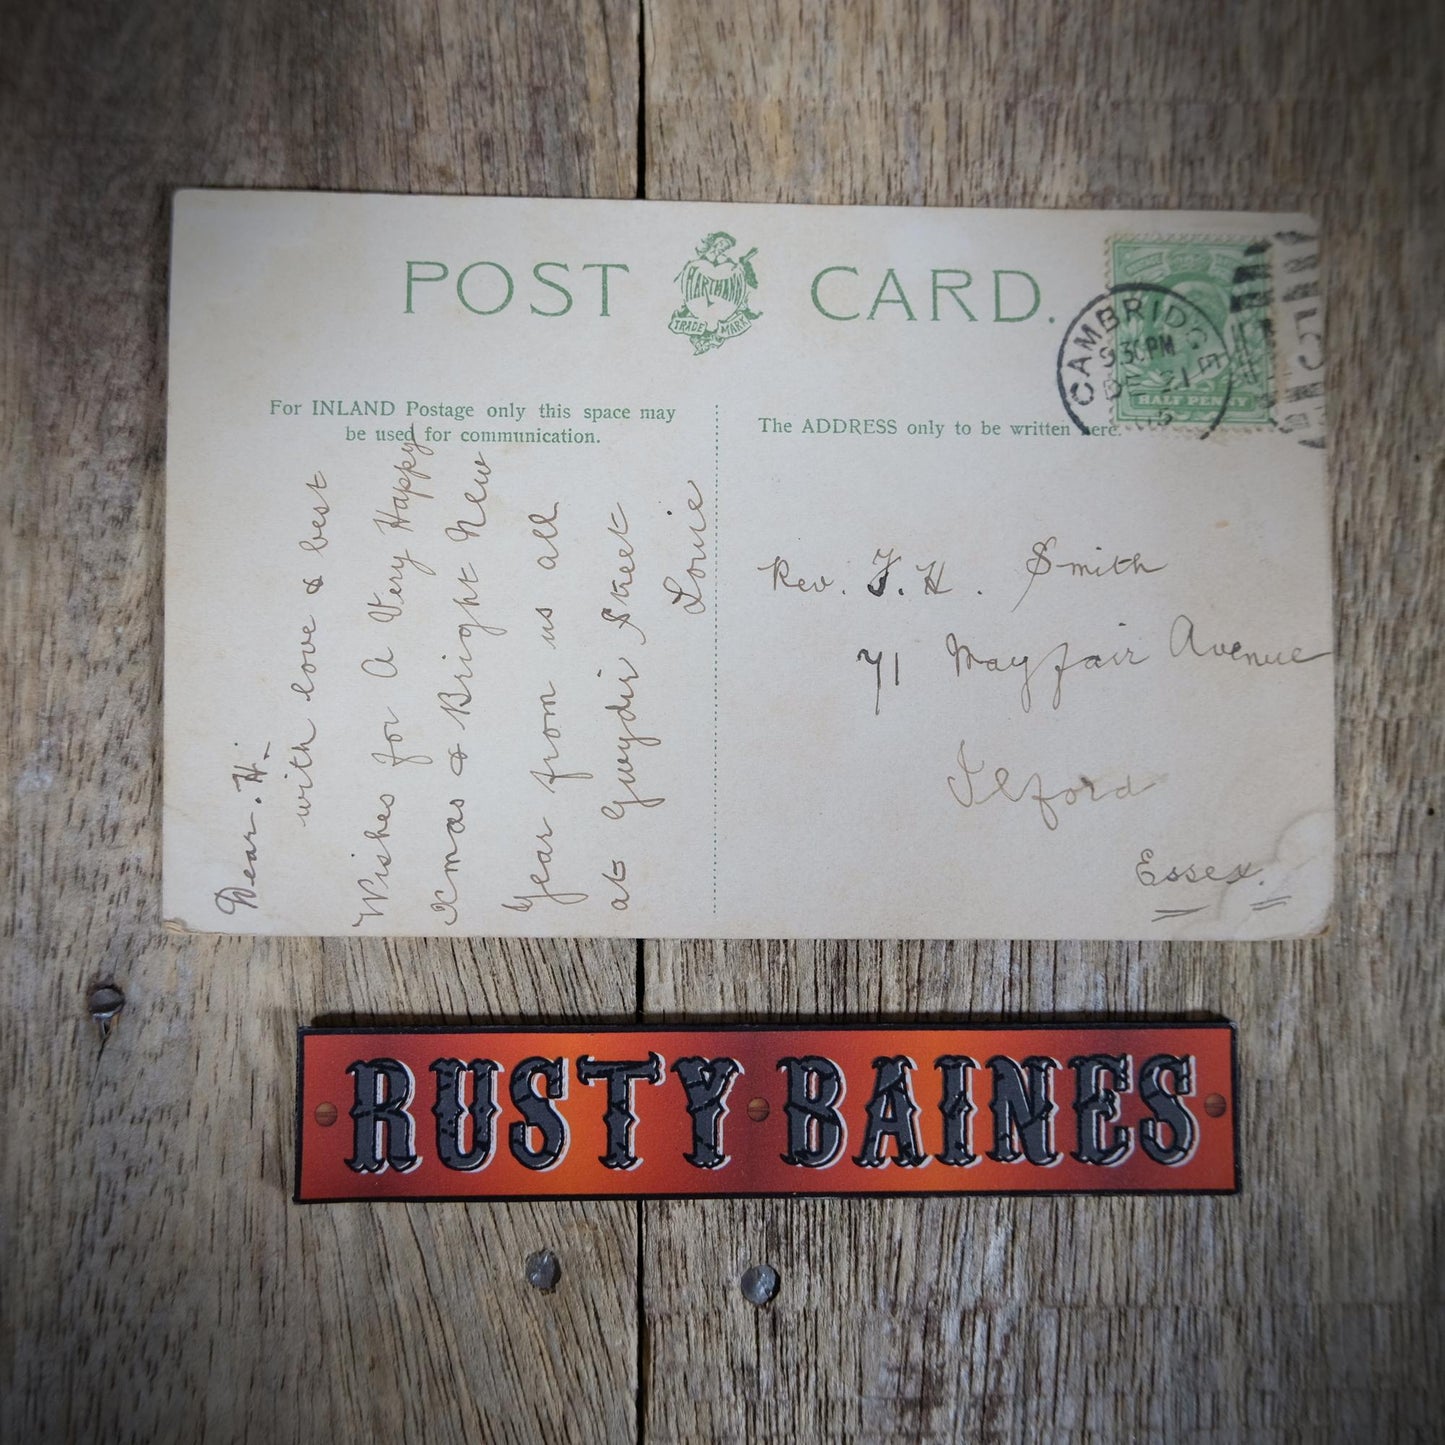 POST CARD.
HARTMANN
TRADE MARK
CAMBRIDGE
9 30 PM
DE 21
05
HALF PENNY
For INLAND Postage only this space may
be used for communication.
The ADDRESS only to be written here.
Dear. H.
with love & best
Wishes for A Very Happy
Xmas & Bright New
Year from us all
at Gwydir Street
Louie
Rev. F. H. Smith
71 Mayfair Avenue
Ilford
Essex.
RUSTY BAINES